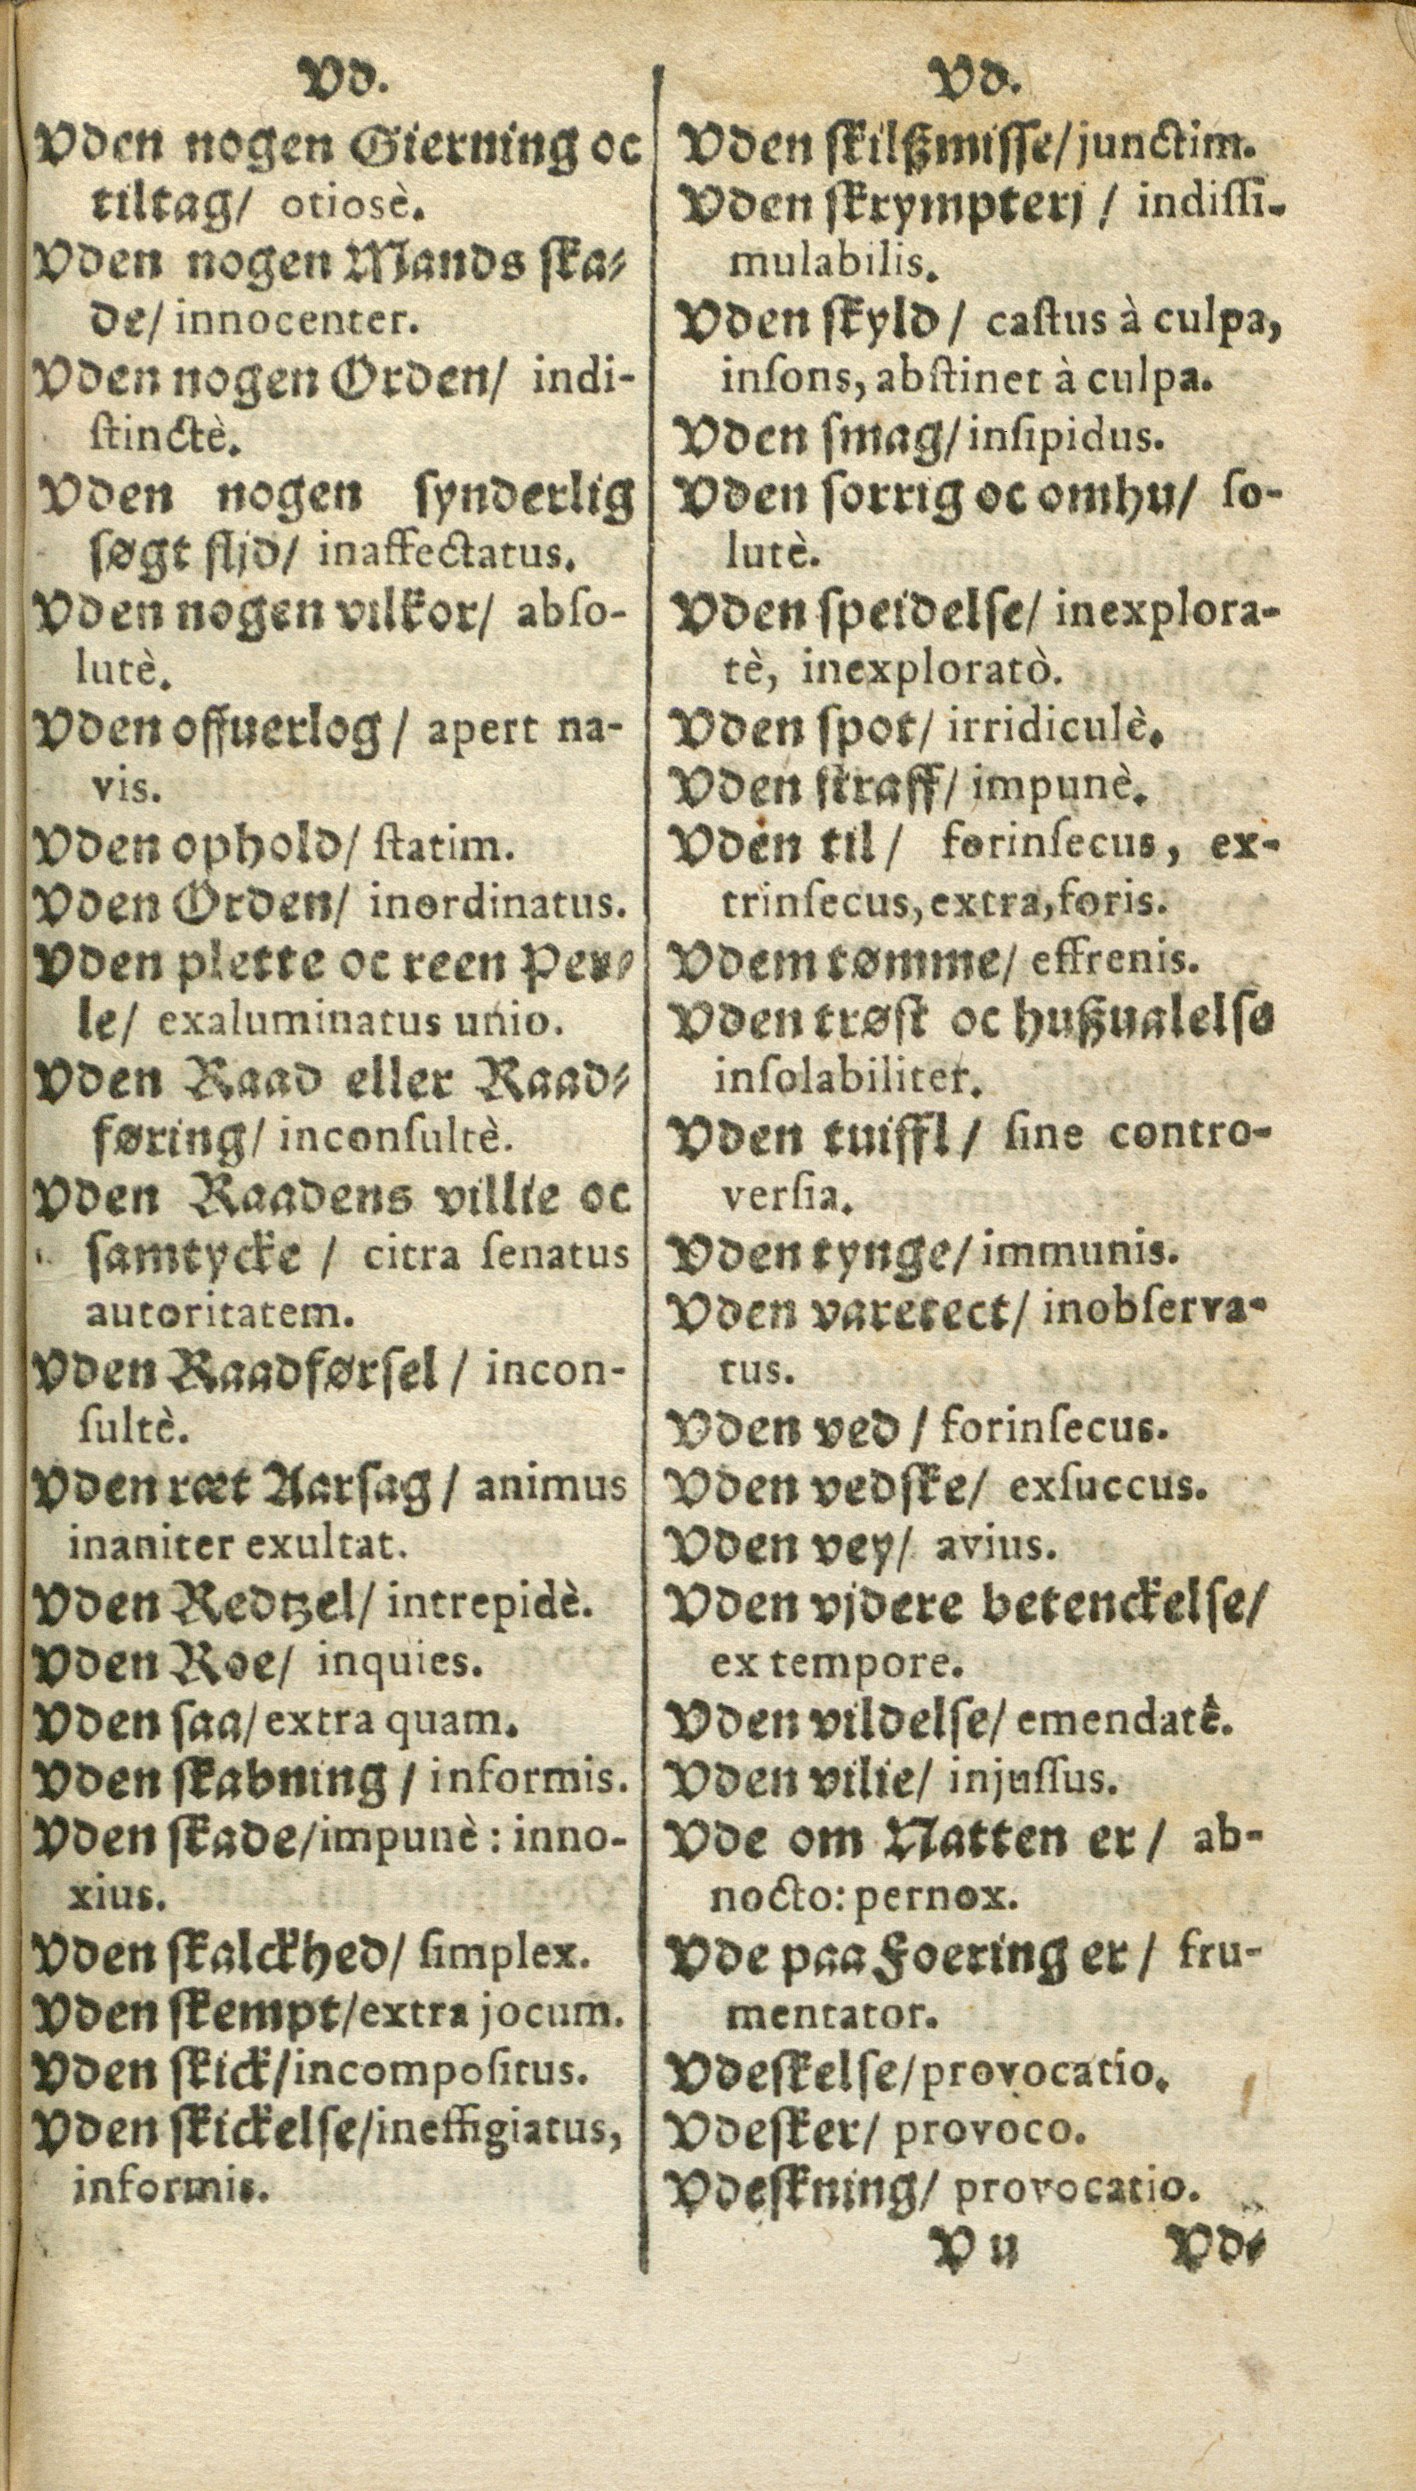 Vd.
Vden nogen Gierning oc
tiltag/ otiosè.
Vden nogen Mands ſka⸗
de/ innocenter.
Vden nogen Orden/ indi-
ſtinctè.
Vden nogen ſynderlig
ſøgt flid/ inaffectatus.
Vden nogen vilkor/ abſo-
lutè.
Vden offuerlog/ apert na-
vis.
Vden ophold/ ſtatim.
Vden Orden/ inordinatus.
Vden plette oc reen Per⸗
le/ exaluminatus unio.
Vden Raad eller Raad⸗
føring/ inconſultè.
Vden Raadens villie oc
ſamtycke/ citra ſenatus
autoritatem.
Vden Raadførſel/ incon-
ſultè.
Vden ræt Aarſag/ animus
inaniter exultat.
Vden Redtzel/ intrepidè.
Vden Roe/ inquies.
Vden ſaa/ extra quam.
Vden ſkabning/ informis.
Vden ſkade/ impunè: inno-
xius.
Vden ſkalckhed/ ſimplex.
Vden ſkempt/ extra jocum.
Vden ſkick/ incompoſitus.
Vden ſkickelſe/ ineffigiatus,
informis.
Vd.
Vden ſkilßmiſſe/ junctim.
Vden ſkrympterj/ indiſſi-
mulabilis.
Vden ſkyld/ caſtus à culpa,
inſons, abſtinet à culpa.
Vden ſmag/ inſipidus.
Vden ſorrig oc omhu/ ſo-
lutè.
Vden ſpeidelſe/ inexplora-
tè, inexploratò.
Vden ſpot/ irridiculè.
Vden ſtraff/ impunè.
Vden til/ forinſecus, ex-
trinſecus, extra, foris.
Vdem tømme/ effrenis.
Vden trøſt oc hußualelſe
inſolabiliter.
Vden tuiffl/ ſine contro-
verſia.
Vden tynge/ immunis.
Vden varetect/ inobſerva-
tus.
Vden ved/ forinſecus.
Vden vedſke/ exſuccus.
Vden vey/ avius.
Vden vjdere betenckelſe/
ex tempore.
Vden vildelſe/ emendatê.
Vden vilie/ injuſſus.
Vde om Natten er/ ab-
nocto: pernox.
Vde paa Foering er/ fru-
mentator.
Vdeſkelſe/ provocatio.
Vdeſker/ provoco.
Vdeſkning/ provocatio.
V u Vd⸗